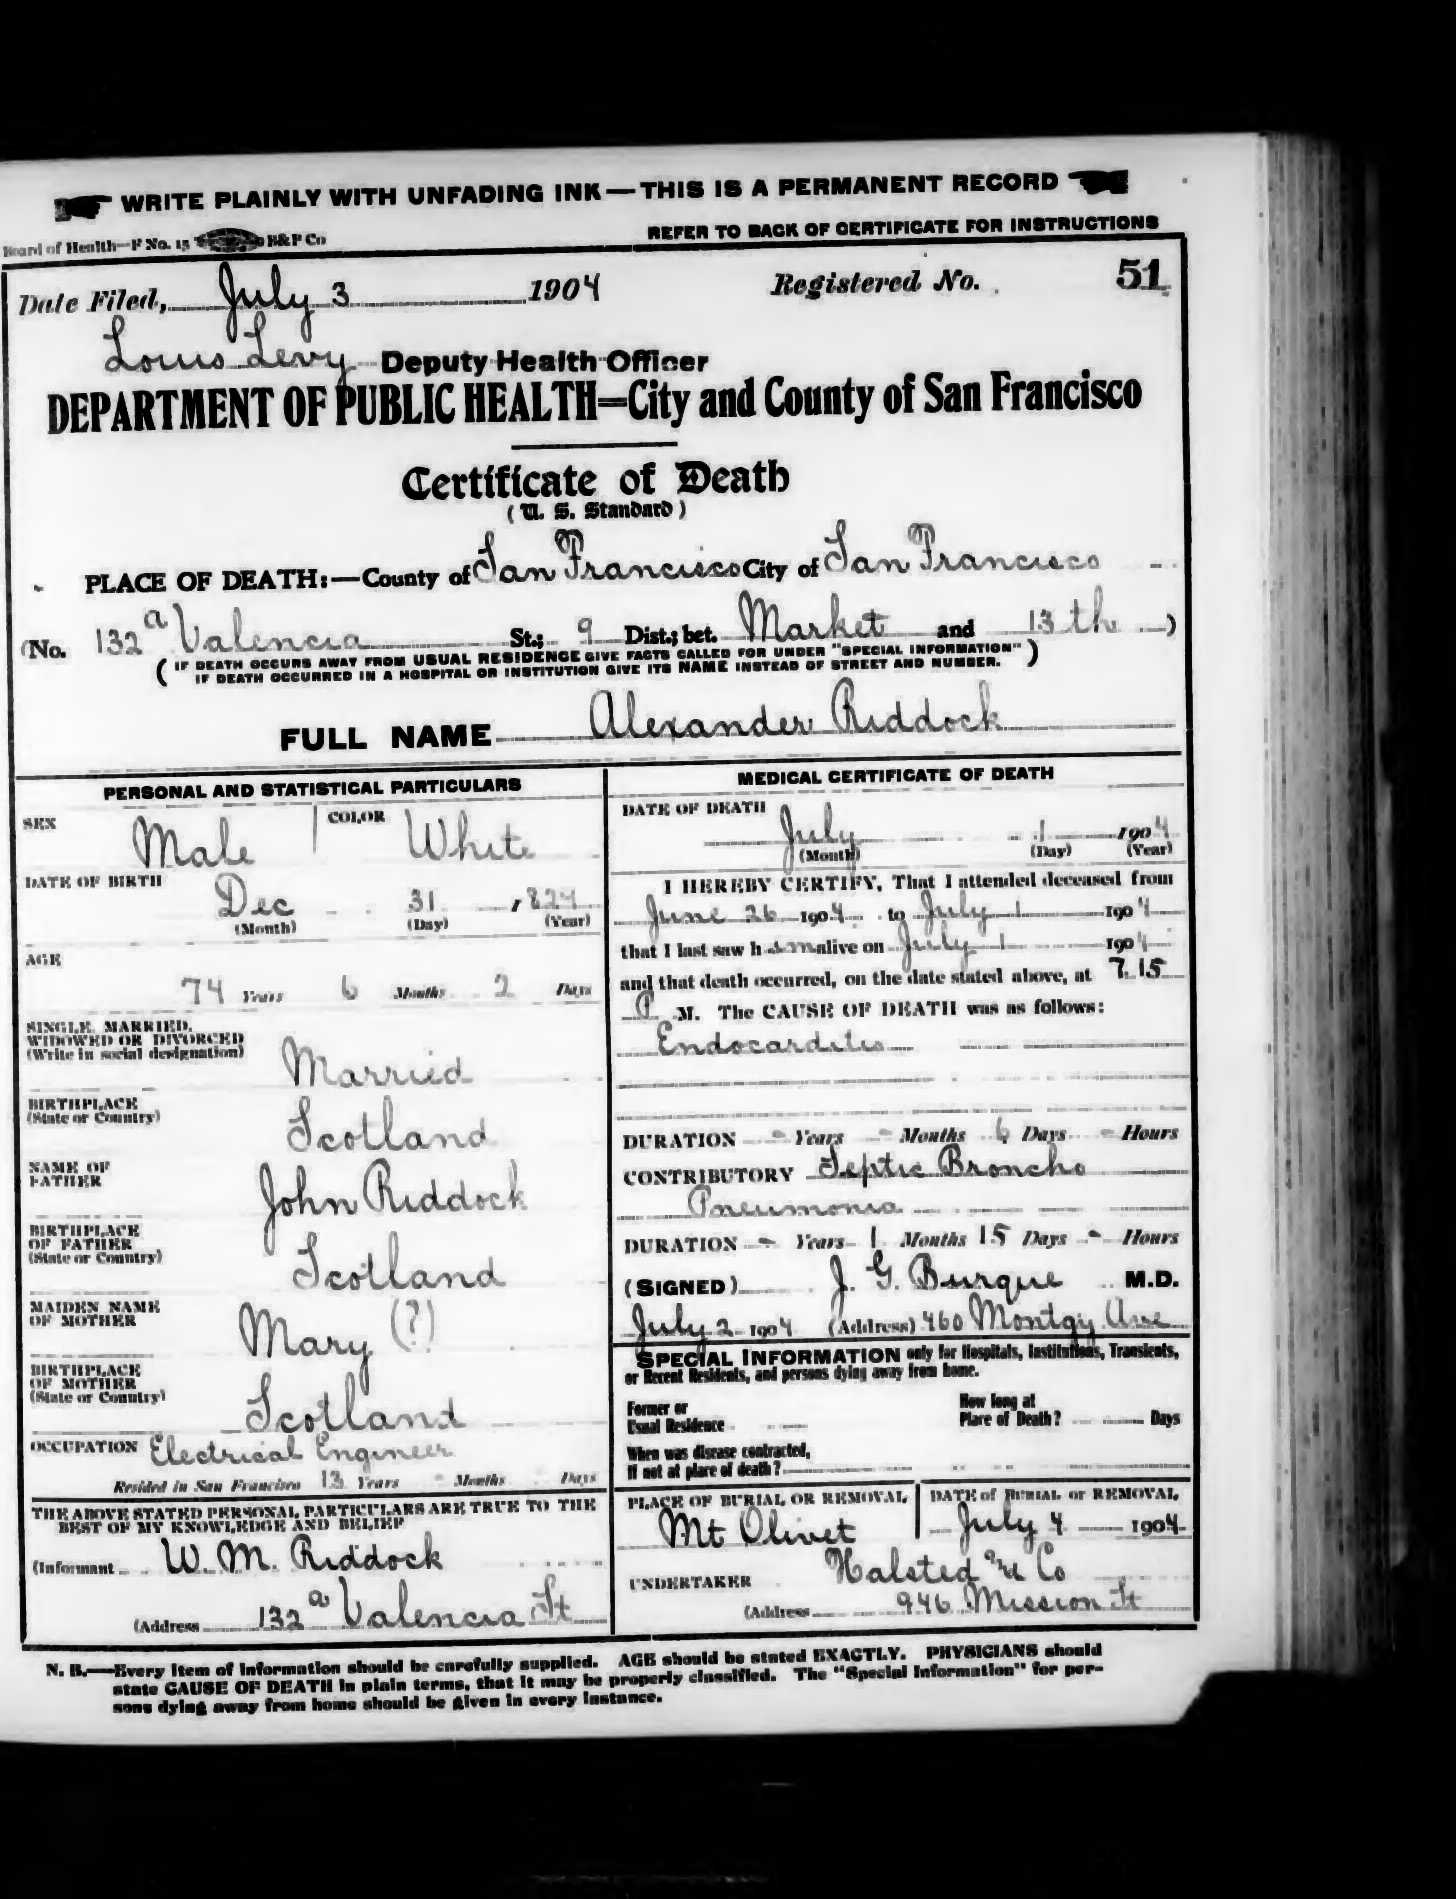 WRITE PLAINLY WITH UNFADING INK — THIS IS A PERMANENT RECORD
Board of Health—F No. 15 B&P Co
REFER TO BACK OF CERTIFICATE FOR INSTRUCTIONS
Date Filed, July 3 1904 Registered No. 51
Louis Levy Deputy Health Officer
DEPARTMENT OF PUBLIC HEALTH=City and County of San Francisco
Certificate of Death
(U. S. Standard)
PLACE OF DEATH:—County of San Francisco City of San Francisco
(No. 132a Valencia St.; 9 Dist.; bet. Market and 13th)
(IF DEATH OCCURS AWAY FROM USUAL RESIDENCE GIVE FACTS CALLED FOR UNDER "SPECIAL INFORMATION"
IF DEATH OCCURRED IN A HOSPITAL OR INSTITUTION GIVE ITS NAME INSTEAD OF STREET AND NUMBER.)
FULL NAME Alexander Riddock
PERSONAL AND STATISTICAL PARTICULARS
SEX Male COLOR White
DATE OF BIRTH
Dec 31, 1824
(Month) (Day) (Year)
AGE
74 Years 6 Months 2 Days
SINGLE, MARRIED,
WIDOWED OR DIVORCED
(Write in social designation)
Married
BIRTHPLACE
(State or Country)
Scotland
NAME OF
FATHER
John Riddock
BIRTHPLACE
OF FATHER
(State or Country)
Scotland
MAIDEN NAME
OF MOTHER
Mary (?)
BIRTHPLACE
OF MOTHER
(State or Country)
Scotland
OCCUPATION Electrical Engineer
Resided in San Francisco 13 Years - Months Days
THE ABOVE STATED PERSONAL PARTICULARS ARE TRUE TO THE
BEST OF MY KNOWLEDGE AND BELIEF
(Informant W. M. Riddock
(Address 132a Valencia St
MEDICAL CERTIFICATE OF DEATH
DATE OF DEATH
July 1 1904
(Month) (Day) (Year)
I HEREBY CERTIFY, That I attended deceased from
June 26 1904 to July 1 1904
that I last saw h im alive on July 1 1904
and that death occurred, on the date stated above, at 7.15
P M. The CAUSE OF DEATH was as follows:
Endocarditis
DURATION - Years - Months 6 Days - Hours
CONTRIBUTORY Septic Broncho
Pneumonia
DURATION - Years 1 Months 15 Days - Hours
(SIGNED) J. G. Burque M.D.
July 2 1904 (Address) 460 Montgy Ave
SPECIAL INFORMATION only for Hospitals, Institutions, Transients,
or Recent Residents, and persons dying away from home.
Former or
Usual Residence
How long at
Place of Death? Days
When was disease contracted,
If not at place of death?
PLACE OF BURIAL OR REMOVAL
Mt Olivet
DATE of BURIAL or REMOVAL
July 4 1904
UNDERTAKER Halsted and Co
(Address 946 Mission St
N. B.—Every item of information should be carefully supplied. AGE should be stated EXACTLY. PHYSICIANS should
state CAUSE OF DEATH in plain terms, that it may be properly classified. The "Special Information" for per-
sons dying away from home should be given in every instance.